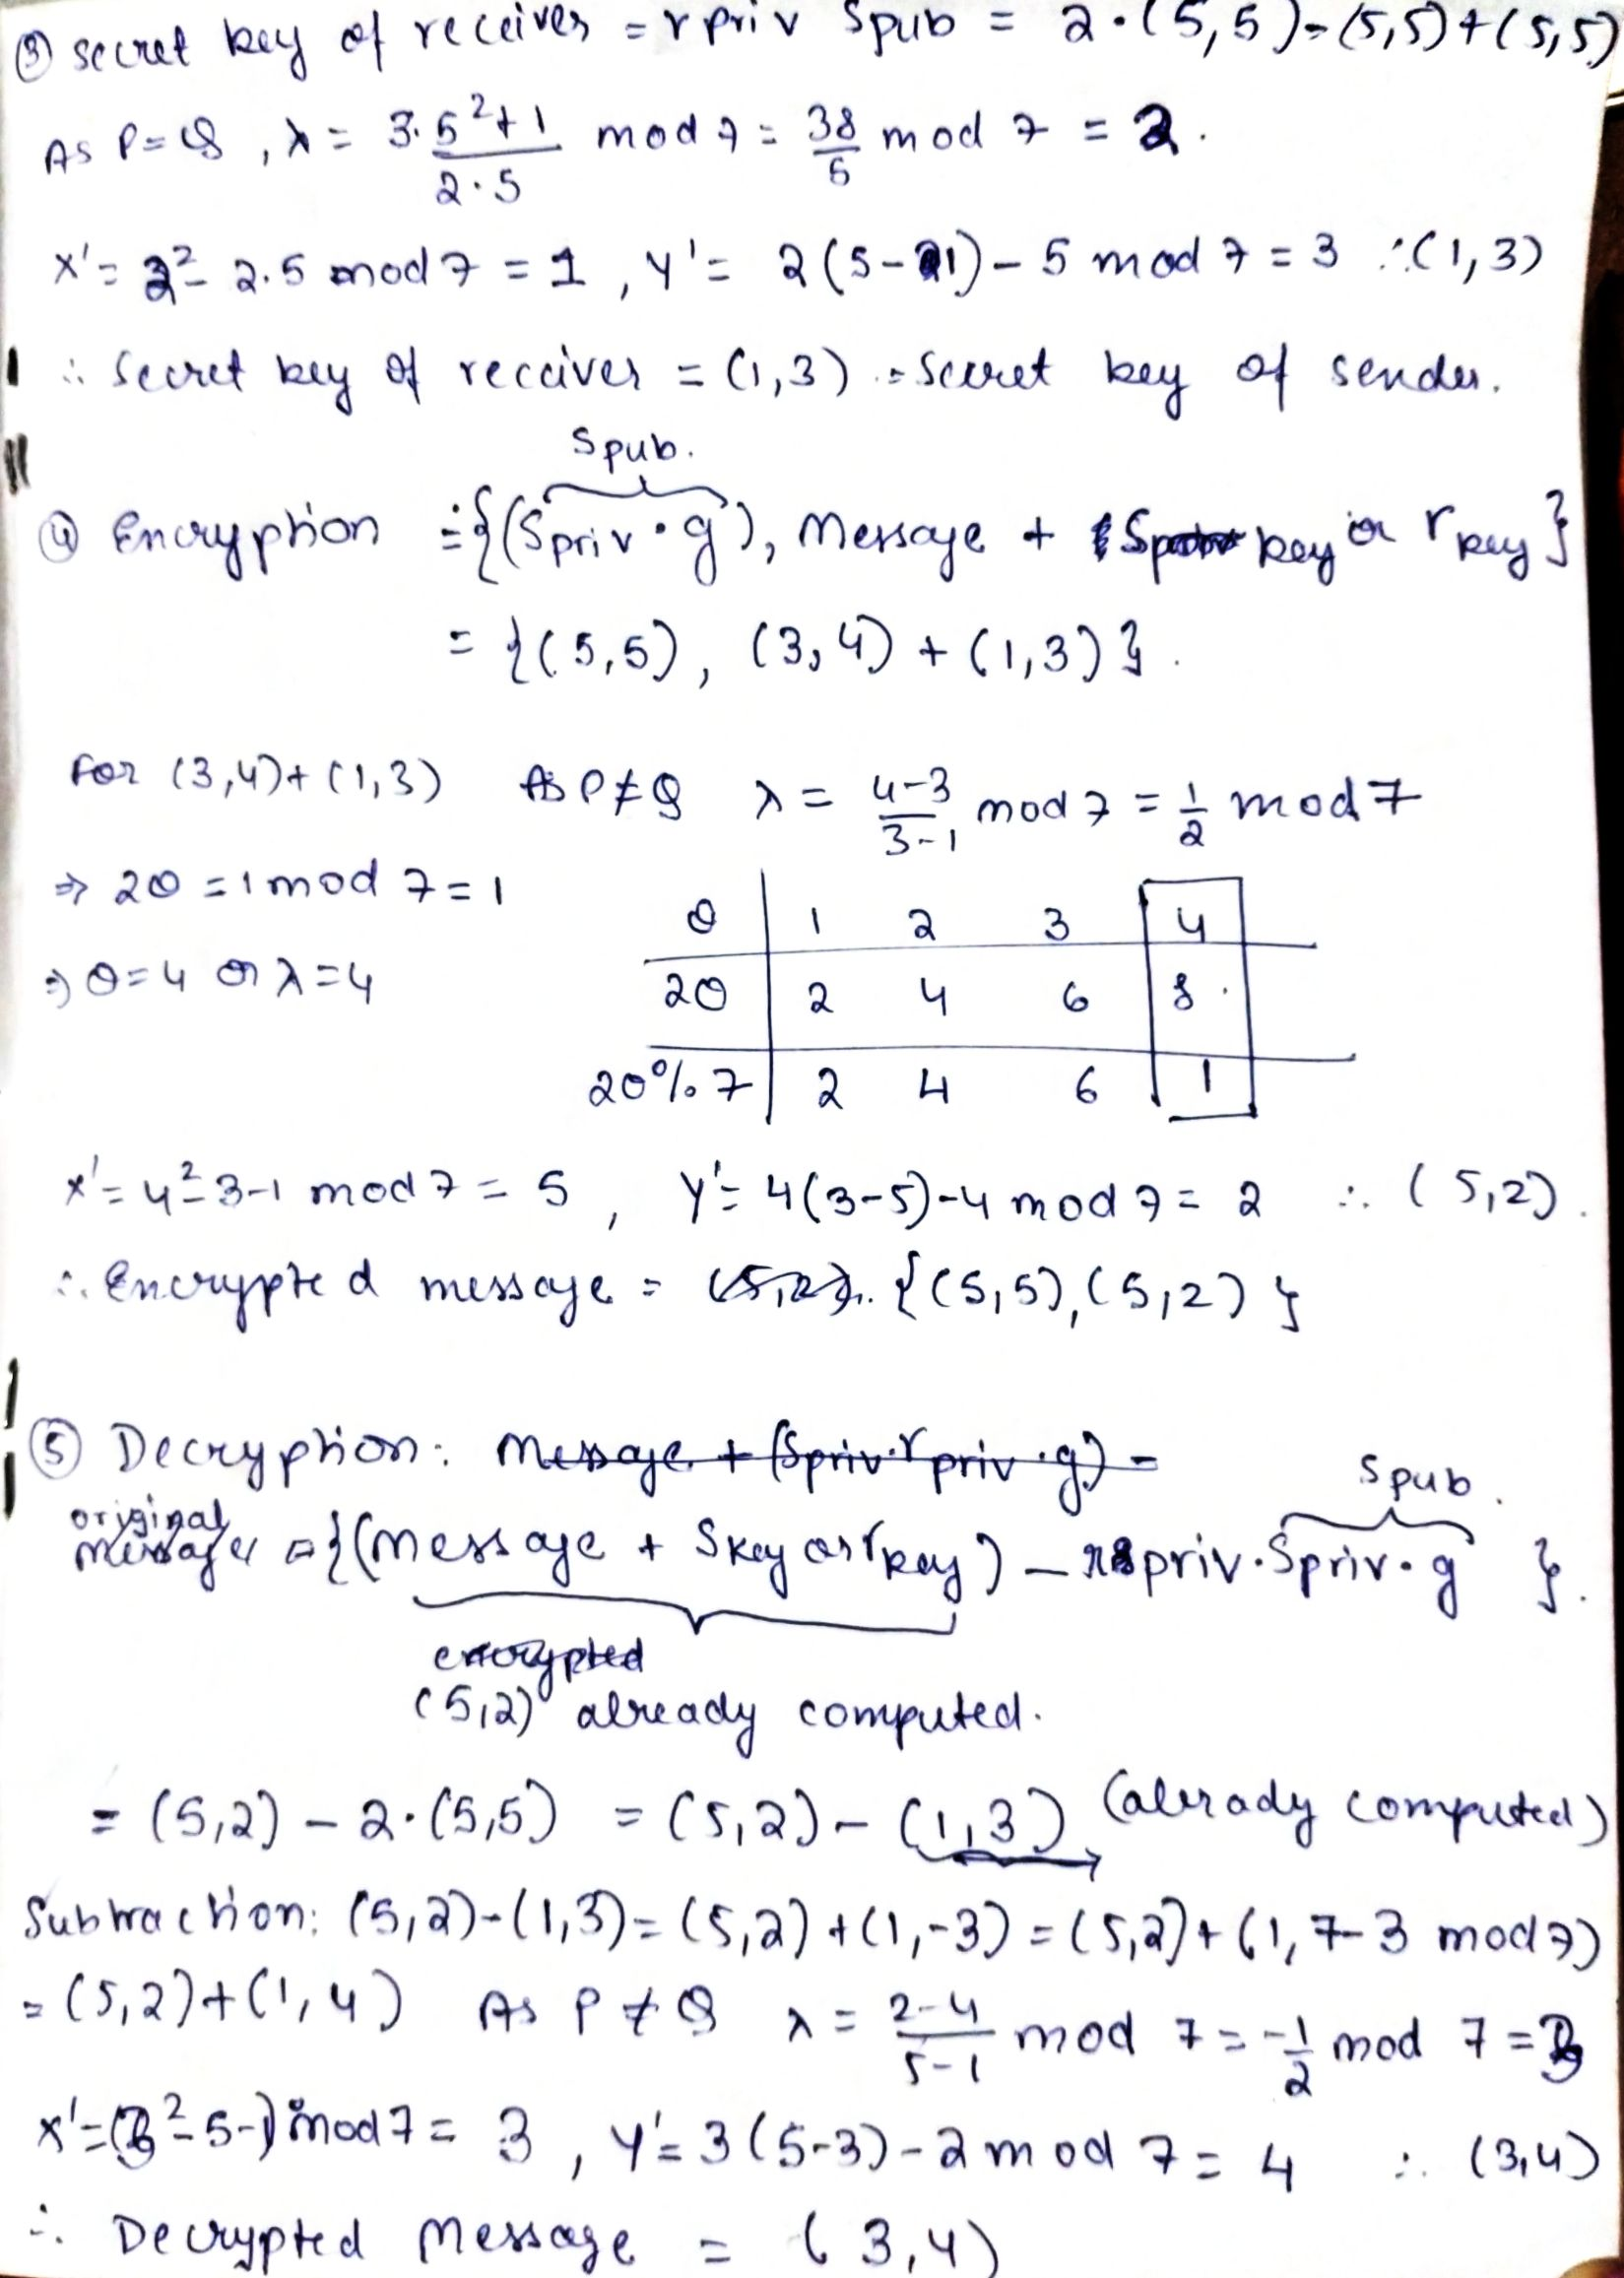 ③ secret key of receiver = rpriv Spub = 2·(5,5) = (5,5)+(5,5)
As P=Q, λ = (3·5²+1)/(2·5) mod 7 = 38/5 mod 7 = 2.
x' = 2² - 2.5 mod 7 = 1, y' = 2(5-1) - 5 mod 7 = 3 ∴ (1,3)
∴ Secret key of receiver = (1,3) = Secret key of sender.
Spub.
④ Encryption = {(Spriv·g), Message + Skey or rkey}
= {(5,5), (3,4) + (1,3)}.
For (3,4)+(1,3) As P≠Q λ = (4-3)/(3-1) mod 7 = 1/2 mod 7
⇒ 2θ = 1 mod 7 = 1
⇒ θ=4 or λ=4
θ | 1 2 3 4
2θ | 2 4 6 8
2θ%7 | 2 4 6 1
x' = 4²-3-1 mod 7 = 5, y' = 4(3-5)-4 mod 7 = 2 ∴ (5,2).
∴ Encrypted message = (5,2). {(5,5),(5,2)}
⑤ Decryption: Message + (Spriv·rpriv·g) -
Spub.
original message = {(Message + Skey or rkey) - rpriv·Spriv·g }.
encrypted
(5,2) already computed.
= (5,2) - 2·(5,5) = (5,2) - (1,3) (already computed)
Subtraction: (5,2)-(1,3) = (5,2)+(1,-3) = (5,2)+(1, 7-3 mod 7)
= (5,2)+(1,4) As P≠Q λ = (2-4)/(5-1) mod 7 = -1/2 mod 7 = 3
x' = (3²-5-1) mod 7 = 3, y' = 3(5-3)-2 mod 7 = 4 ∴ (3,4)
∴ Decrypted Message = (3,4)